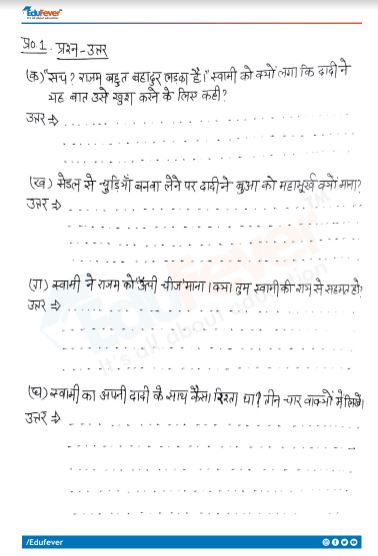 EduFever
It's all about education
प्र०1. प्रश्न-उत्तर
(क) "सच? राजम् बहुत बहादुर लड़का है।" स्वामी को क्यों लगा कि दादी ने
यह बात उसे खुश करने के लिए कही?
उत्तर ⇒
(ख) मेडल से चूड़ियाँ बनवा लेने पर दादी ने बुआ को महामूर्ख क्यों माना?
उत्तर ⇒
(ग) स्वामी ने राजम को 'ऊँची चीज' माना। क्या तुम स्वामी की राय से सहमत हो?
उत्तर ⇒
(घ) स्वामी का अपनी दादी के साथ कैसा रिश्ता था? तीन-चार वाक्यों में लिखो।
उत्तर ⇒
EduFever TM
It's all about education
/Edufever